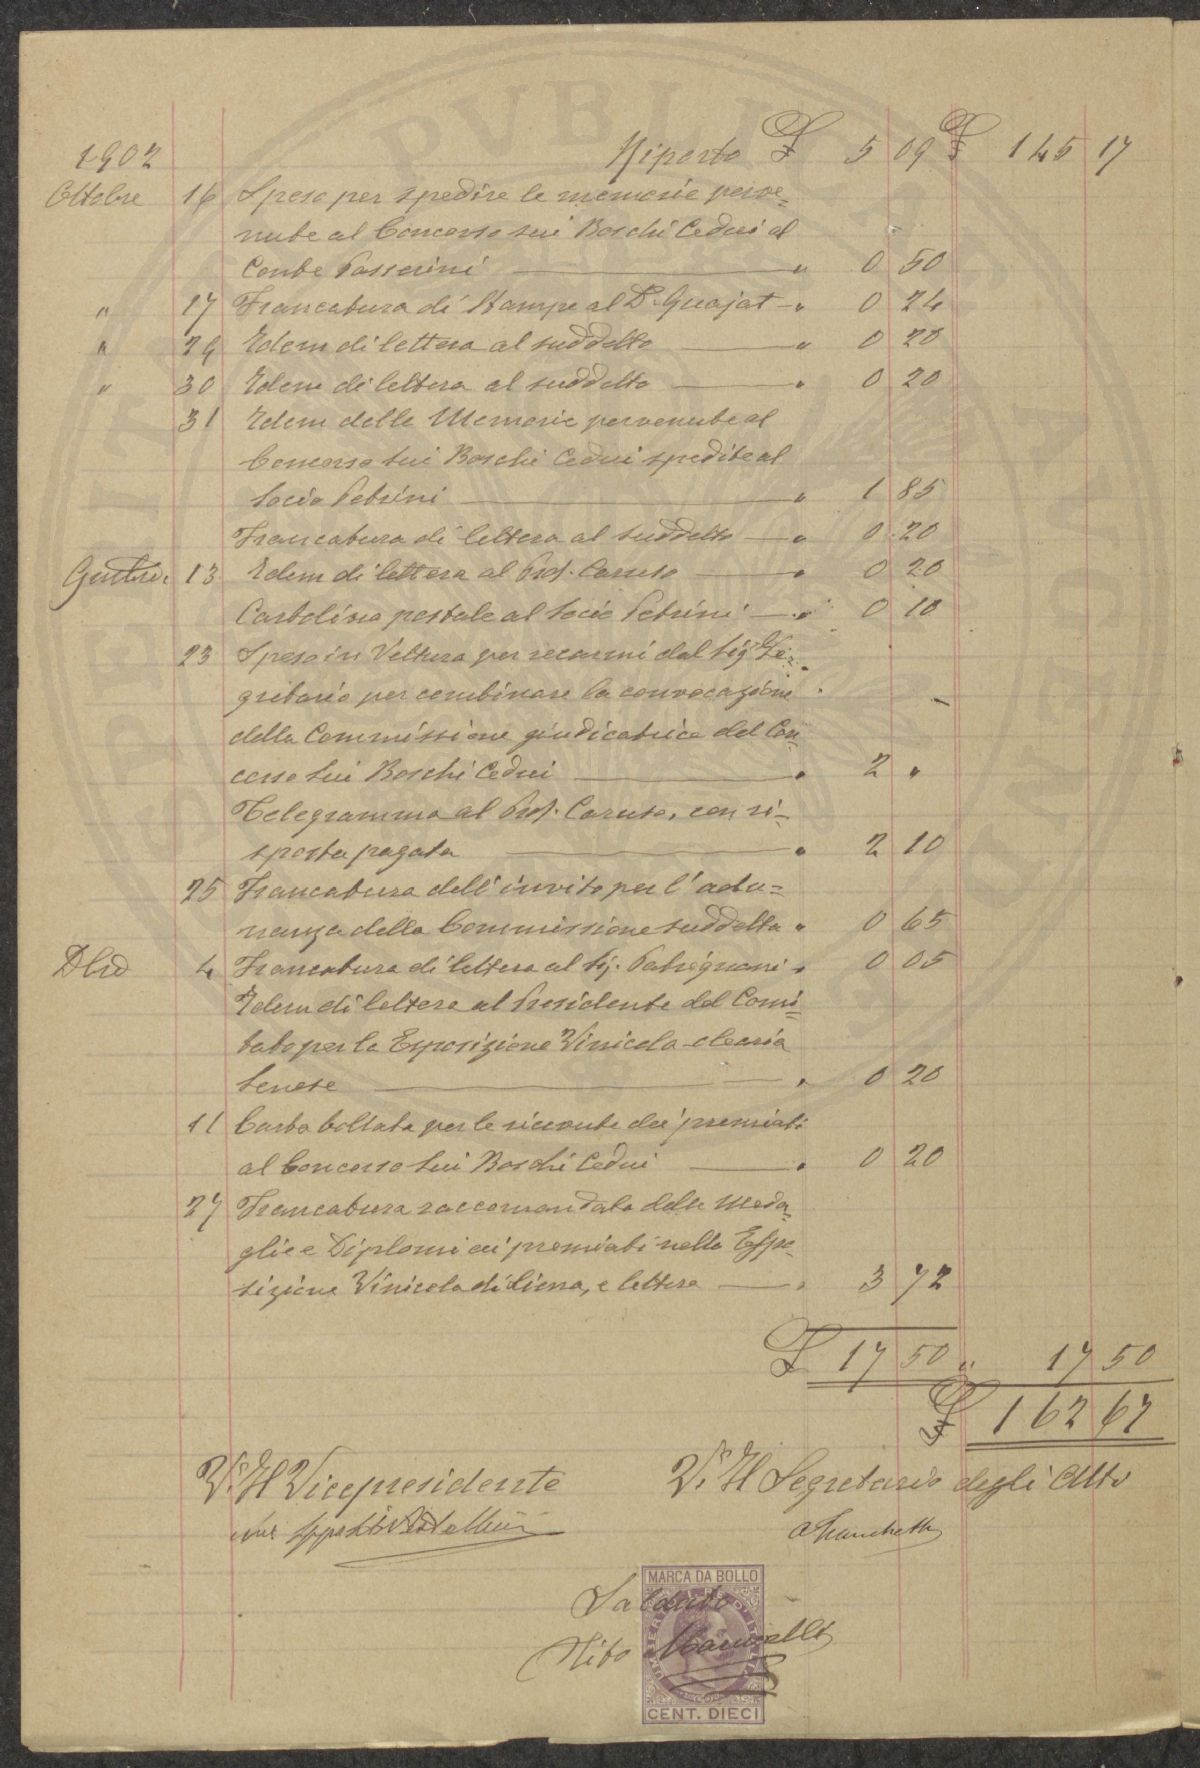 1902 Riporto £ 5 09 £ 145 17
Ottobre 16 Spesa per spedire le memorie perve=
nute al Concorso sui Boschi Cedui al
Conte Passerini " 0 50
" 17 Francatura di Stampe al Dr. Guajat " 0 24
" 29 Idem di lettera al suddetto " 0 20
" 30 Idem di lettera al suddetto " 0 20
31 Idem delle Memorie pervenute al
Concorso sui Boschi Cedui spedite al
Socio Petrini " 1 85
Francatura di lettera al suddetto " 0 20
13 Idem di lettera al Prof. Caruso " 0 20
Cartolina postale al Socio Petrini " 0 10
23 Spesa in Vettura per recarmi dal Sig. Se=
gretario per combinare la convocazione
della Commissione giudicatrice del Con=
corso sui Boschi Cedui " 2 "
Telegramma al Prof. Caruso, con ri=
sposta pagata " 2 10
25 Francatura dell'invito per l'adu=
nanza della Commissione suddetta " 0 65
4 Francatura di lettera al Sig. Patrignani " 0 05
Idem di lettera al Presidente del Comi=
tato per la Esposizione Vinicola-olearia
Senese " 0 20
11 Carta bollata per le ricevute dei premiati
al Concorso sui Boschi Cedui " 0 20
27 Francatura raccomandata delle Meda=
glie e Diplomi ai premiati nella Espo=
sizione Vinicola di Siena, e lettera " 3 72
£ 17 50 " 17 50
£ 162 67
V. Il Vicepresidente V. Il Segretario degli Atti
MARCA DA BOLLO
Saldato
Tito
CENT. DIECI